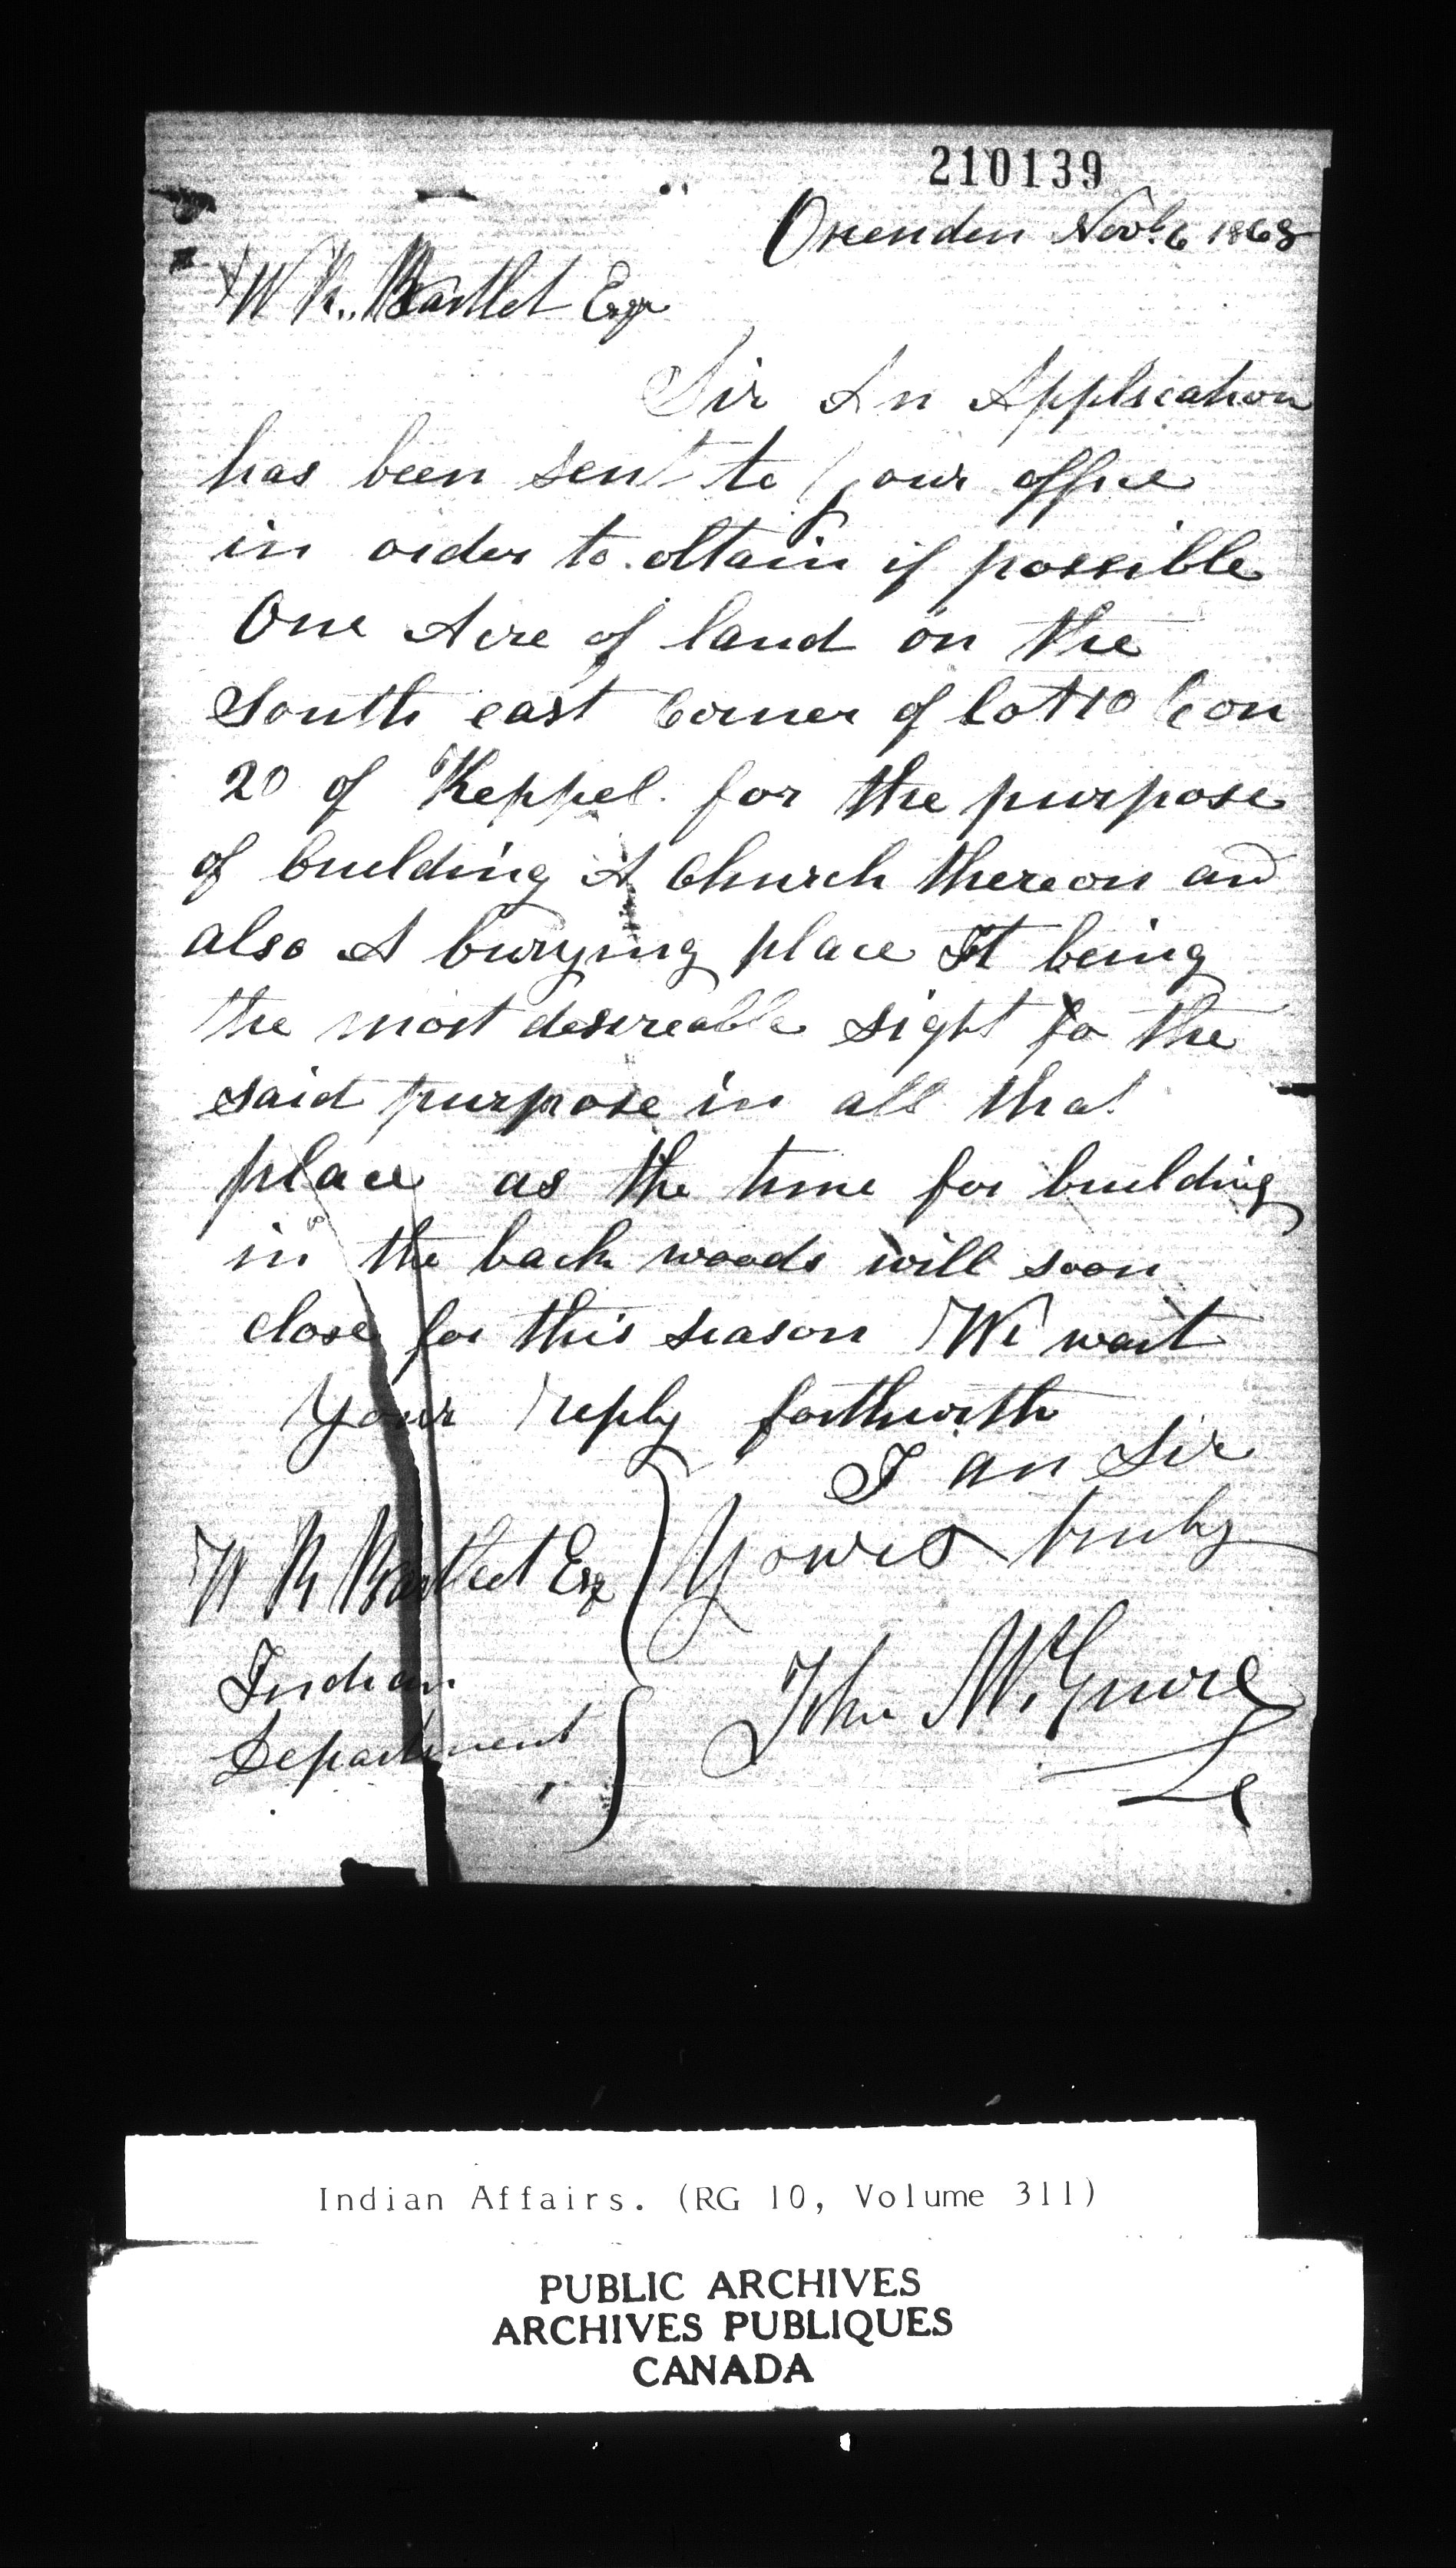 210139
Oxenden Novb. 6 1868
W R. Bartlet Esqr
Sir An Application
has been sent to your office
in order to obtain if possible
One Acre of land on the
South east Corner of lot 10 Con
20 of Keppel. for the purpose
of building A Church thereon and
also A burying place It being
the most desireable sight fo the
said purpose in all that
place as the time for building
in the back woods will soon
close for this season We wait
Your reply forthwith
I am Sir
Yours truly
W R Bartlet Esqr
Indian
Department
John McGuire
Indian Affairs. (RG 10, Volume 311)
PUBLIC ARCHIVES
ARCHIVES PUBLIQUES
CANADA